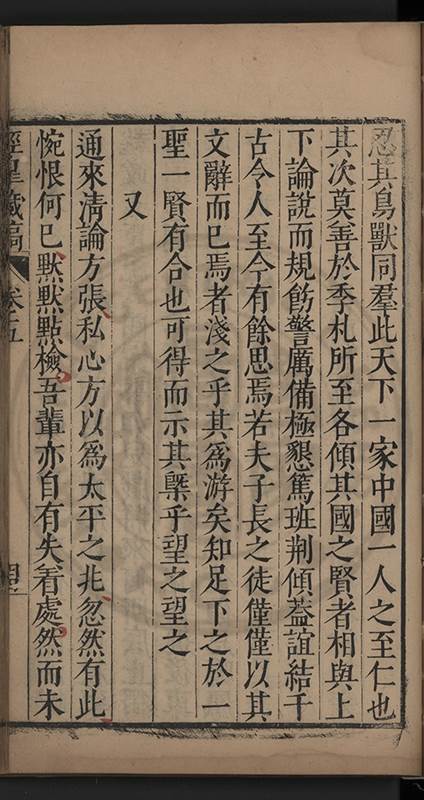 忍其鳥獸同羣此天下一家中國一人之至仁也
其次莫善於季札所至各傾其國之賢者相與上
下論說而規飭警厲備極懇篤班荆傾蓋誼結千
古今人至今有餘思焉若夫子長之徒僅僅以其
文辭而已焉者淺之乎其爲游矣知足下之於一
聖一賢有合也可得而示其槩乎望之望之
又
通來清論方張私心方以爲太平之兆忽然有此
惋恨何已默默點檢吾輩亦自有失着處然而未
涇臯藏稿
卷之五